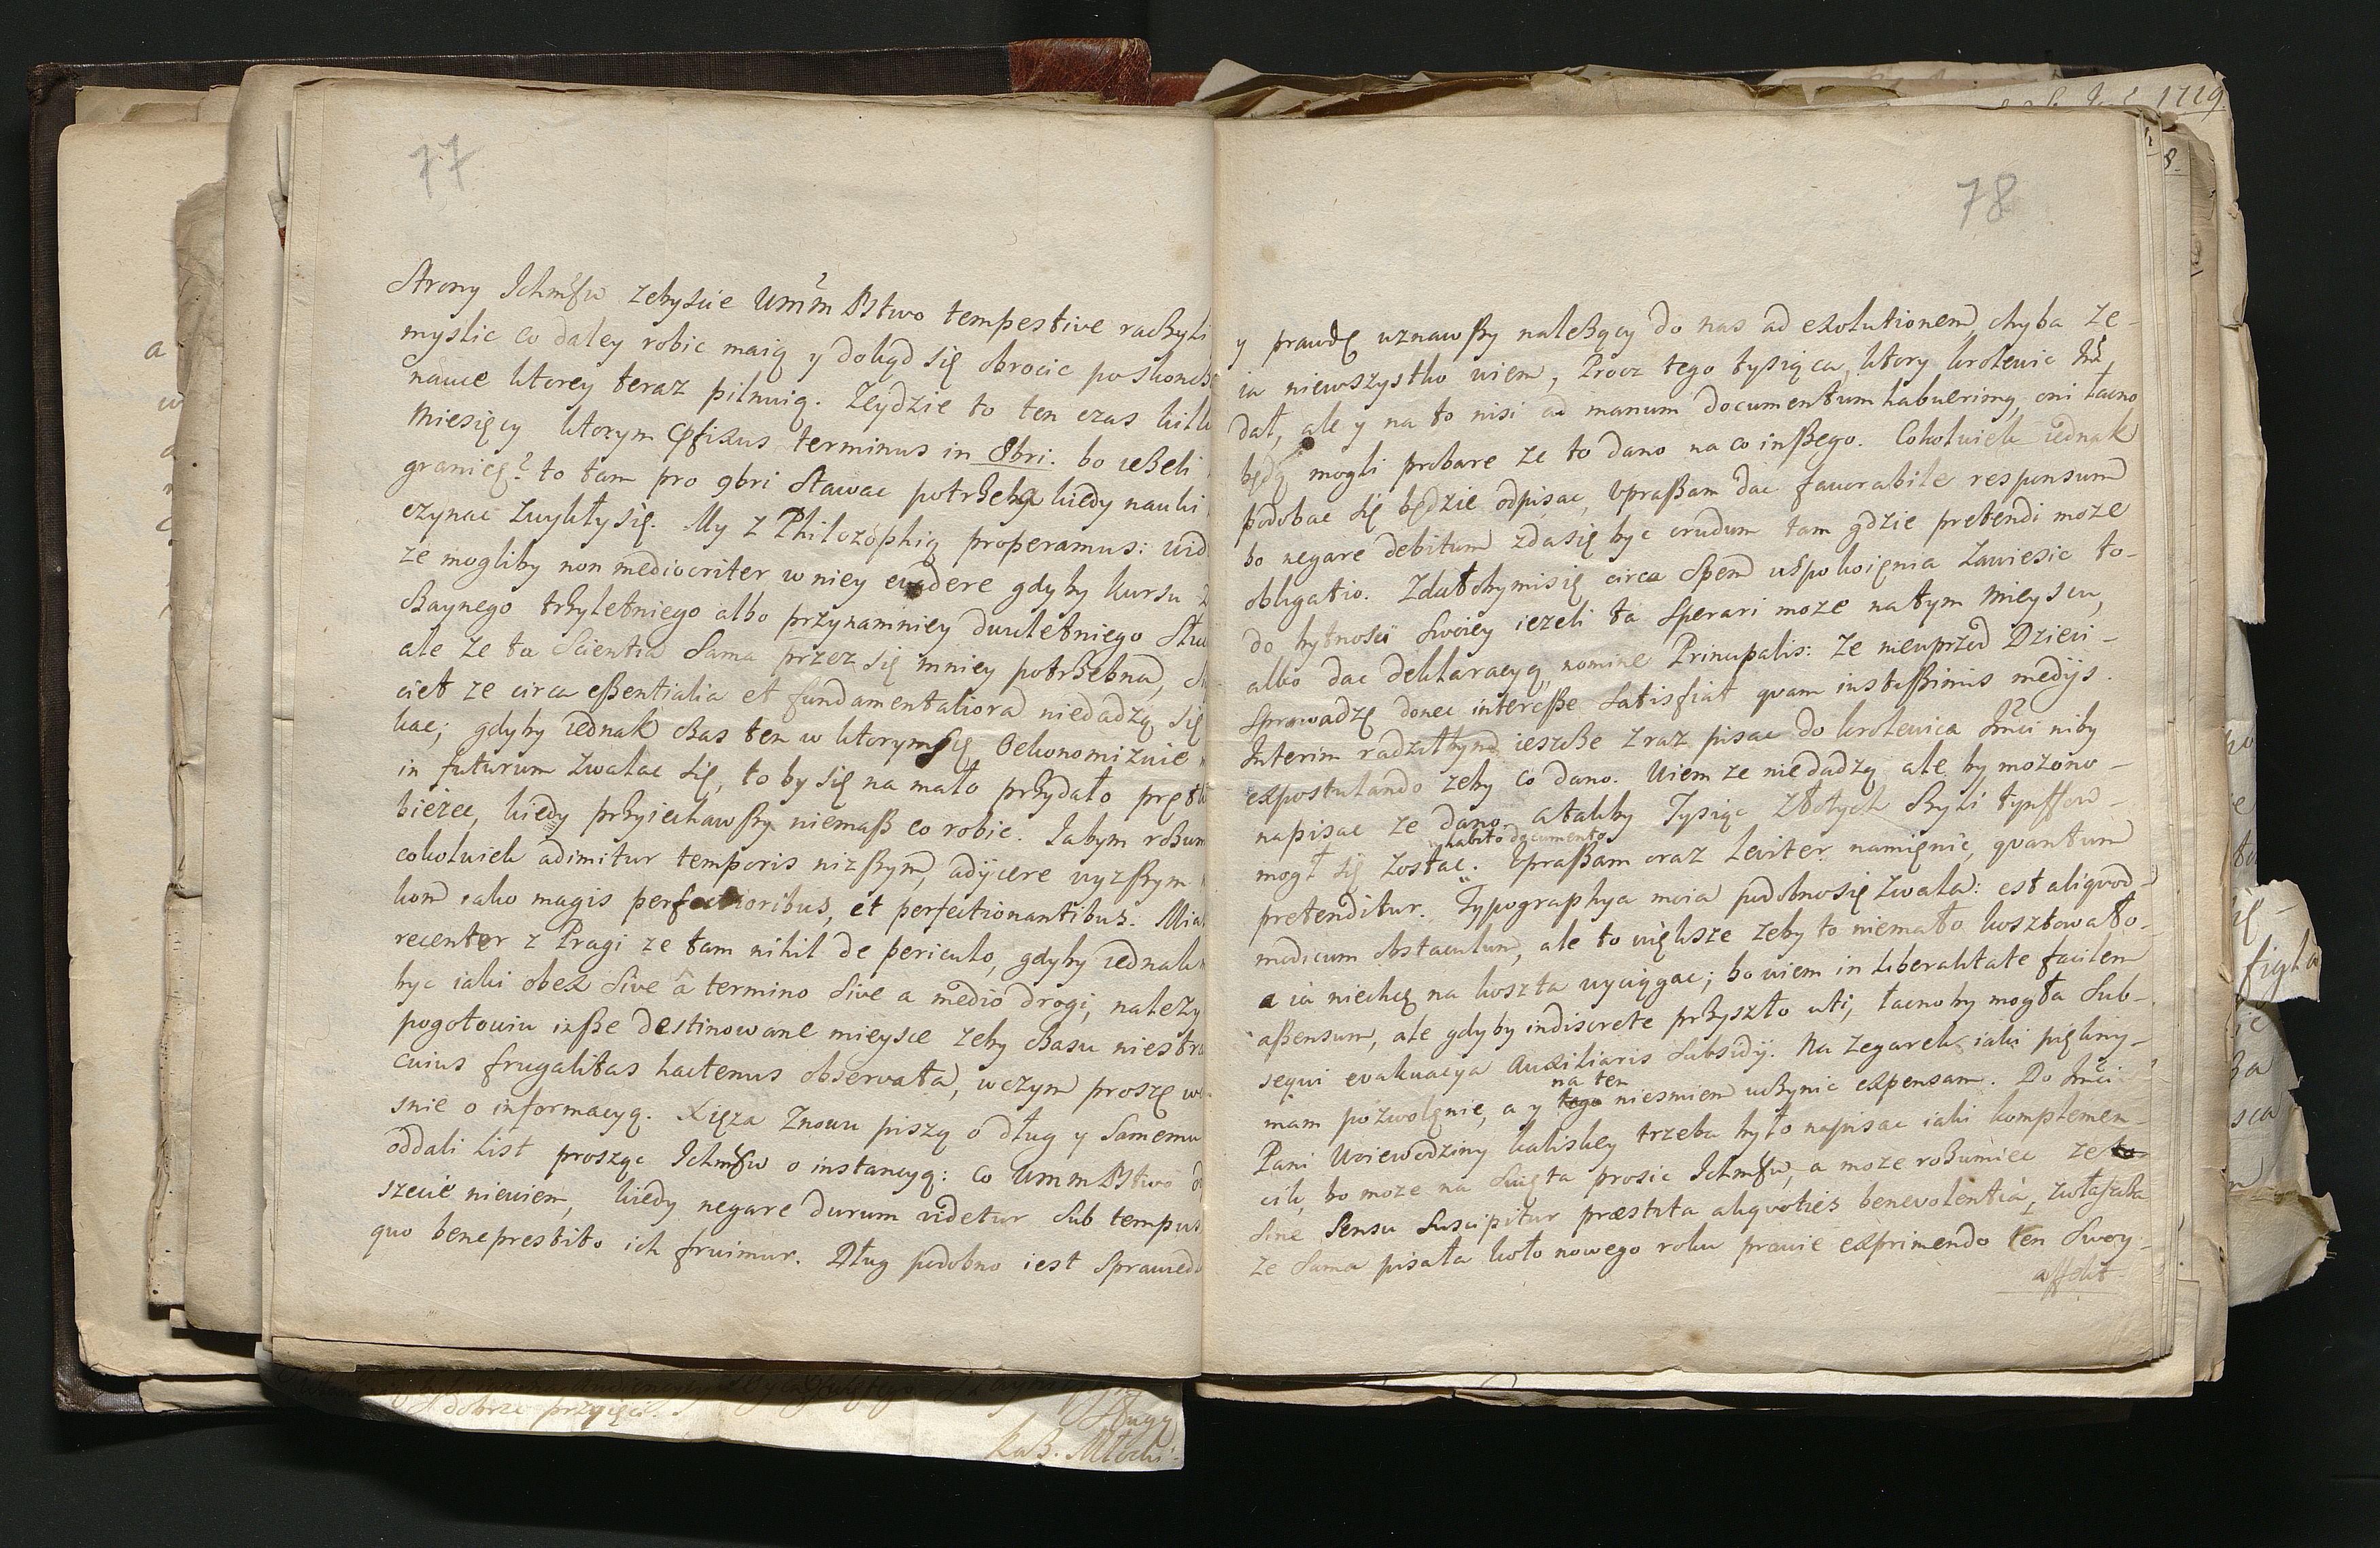 77
Strony Ichmśśw zebyscie UmmPstwo tempestive raczyli
myslic co daley robic maią y dokąd się obrocic po skoncz
nauce ktorey teraz pilnuią. Zeydzie to ten czas kilk
Miesięcy ktorym terminus in 8bri. bo ieżeli
granicę? to tam pro 9bri stawac potrzeba kiedy nauki
czynac zwykły się. My z Philozophią properamus: wid
ze mogliby non mediocriter w niey evadere gdyby kursu
trzyletniego albo przynamniey dwuletniego
ale ze ta Scientia sama przez się mniey potrzebna,
ze circa eßentialia et fundamentaliora niedadzą się
kac; gdyby iednak czas ten w ktorym się Oekonomizuie
in futurum zwalac się, to by się na mało przydało
bieżec, kiedy przyiechawszy niemasz co robic. Iabym rozum
cokolwiek adimitur temporis nizszym, adijcere wyzszym
kom iako magis perfectioribus, et perfectionantibus. Mia
recenter z Pragi ze tam nihil de periculo, gdyby iednak
byc iaki obex sive a termino sive a medio drogi, nalezy
pogotowiu insze destinowane mieysce zeby czasu niestra
cuius frugalitas hactenus observata, w czym proszę w
snie o informacyą. Xięza znowu piszą o dług y samemu
oddali list prosząc Ichmśśw o instancyą: co UmmPstwo
szecie niewiem, kiedy negare durum videtur sub tempus
quo beneprestito ich fruimur. Dług podobno iest sprawied
dobrze przyięci.
Sługą
Kaz. Młocki
1719.
8.
78
y prawdę uznawszy należący do nas ad exolutionem, chyba ze-
ia niewszystko wiem, Procz tego tysiąca, ktory krolewic Imć
dał, ale y na to nisi ad manum documentum habuerimus, oni łacno
będą mogli probare ze to dano na co inszego. Cokolwiek iednak
podobac się będzie odpisac, upraszam dac favorabile responsum
bo negare debitum zda się byc crudum tam gdzie pretendi moze
obligatio. Zdałobymisię circa spem uspokoięnia zawiesic to-
do bytnosci swoiey iezeli ta sperari moze na tym mieyscu,
albo dac deklaracyą, nomine Principalis: ze nieuprzod Dzieci-
sprowadzę donec intereße satisfiat quam iustißimis medijs.
Interim radziłbym ieszcze z raz pisac do krolewica Imci niby
expostulando zeby co dano. Wiem ze nie dadzą ale by mozono-
napisac ze dano. a takby Tysiąc złotych czyli tynffow-
mogł się zostac. habito documento Upraszam oraz leviter namięnic, quantum
pretenditur. Typographya moia podobno się zwala: est aliquod-
modicum obstaculum, ale to większe zeby to niemało kosztowało.
a ia niechcę na koszta wyciągac; bo wiem in liberalitate facilem
aßensum, ale gdyby indiscrete przyszło uti, łacno by mogła sub-
sequi evakuacya auxiliaris subsidij. Na zegarek iaki piękny-
mam pozwolęnie, a y na ten niesmiem uczynic expensam. Do Imci
Pani Woiewodziny kaliskiey trzeba było napisac iaki komplemen-
cik, bo moze na swięta prosic Ichmśśw, a moze rozumiec ze
sine sensu suscipitur præstita aliquoties benevolentia, zwłaszcza
ze sama pisała koło nowego roku prawie exprimendo ten swoy-
affekt